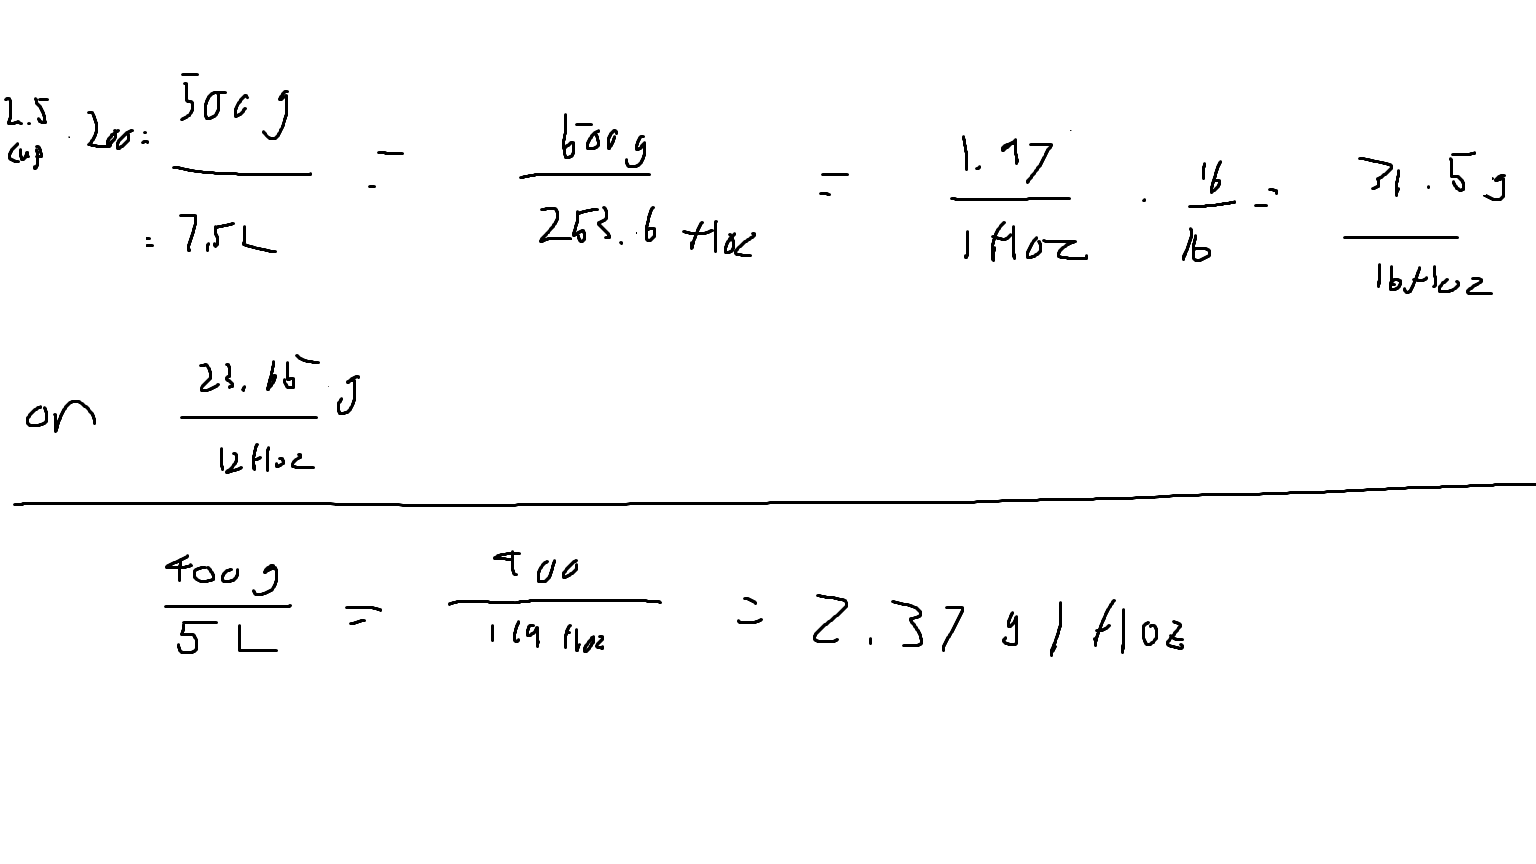 2.5 cup · 200 = 500 g / 7.5 L = 500 g / 253.6 floz = 1.97 / 1 floz · 16 / 16 = 31.5 g / 16 floz
or 23.65 g / 12 floz
400 g / 5 L = 400 / 169 floz = 2.37 g / floz